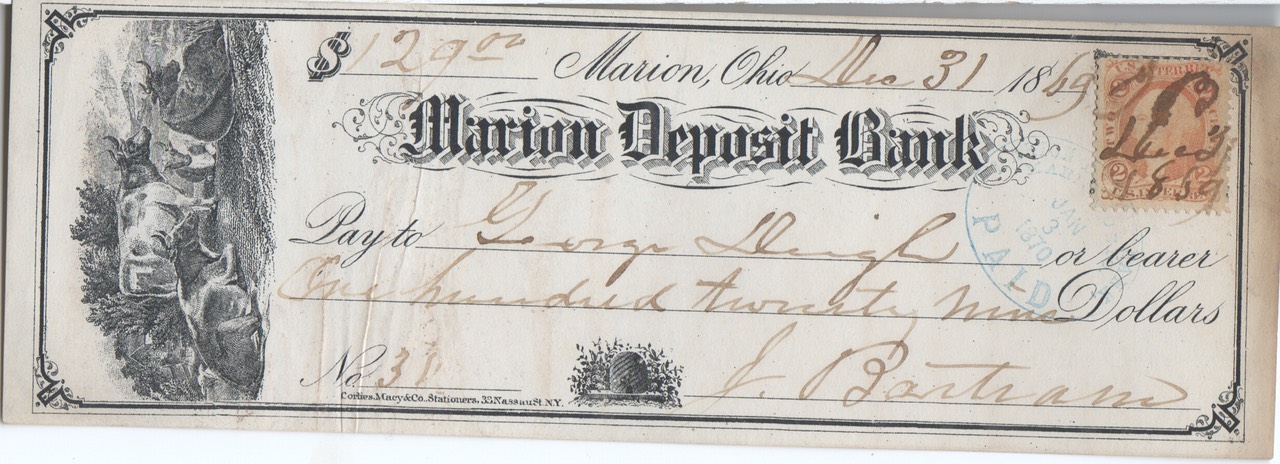 $ 129 00 Marion, Ohio Dec 31 1869
Marion Deposit Bank
Pay to George Deigh or bearer
One hundred twenty nine Dollars
No. 38
J. Bartram
Corlies, Macy & Co. Stationers, 33 Nassau St. N.Y.
U.S. INTER. REV.
TWO
2 2
Dec 31
1869
JAN
3
1870
PAID